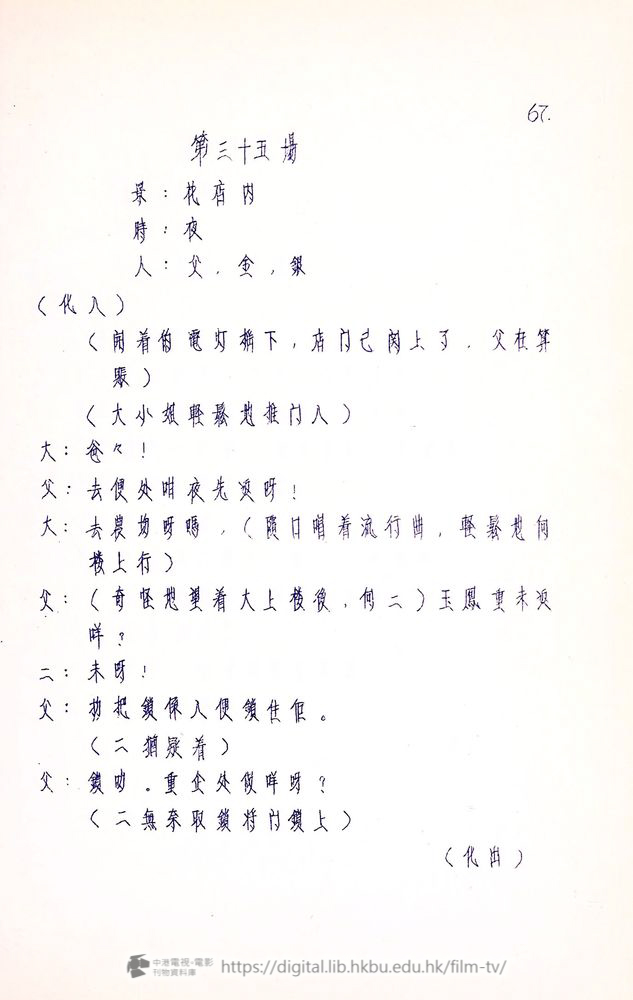 67.
第三十五場
景：花店內
時：夜
人：父，金，銀
（化入）
（開着的電灯猜下，店门已関上了，父在算
賬）
（大小姐輕鬆地推门入）
大：爸々！
父：去便处咁夜先返呀！
大：去農塲呀嗎，（隨口唱着流行曲，輕鬆地向
楼上行）
父：（奇怪地望着大上楼後，向二）玉鳳重未返
咩？
二：未呀！
父：攞把鎖係入便鎖住佢。
（二猶疑着）
父：鎖啲。重企处做咩呀？
（二無奈取鎖将门鎖上）
（化出）
中港電視·電影
刊物資料庫
https://digital.lib.hkbu.edu.hk/film-tv/